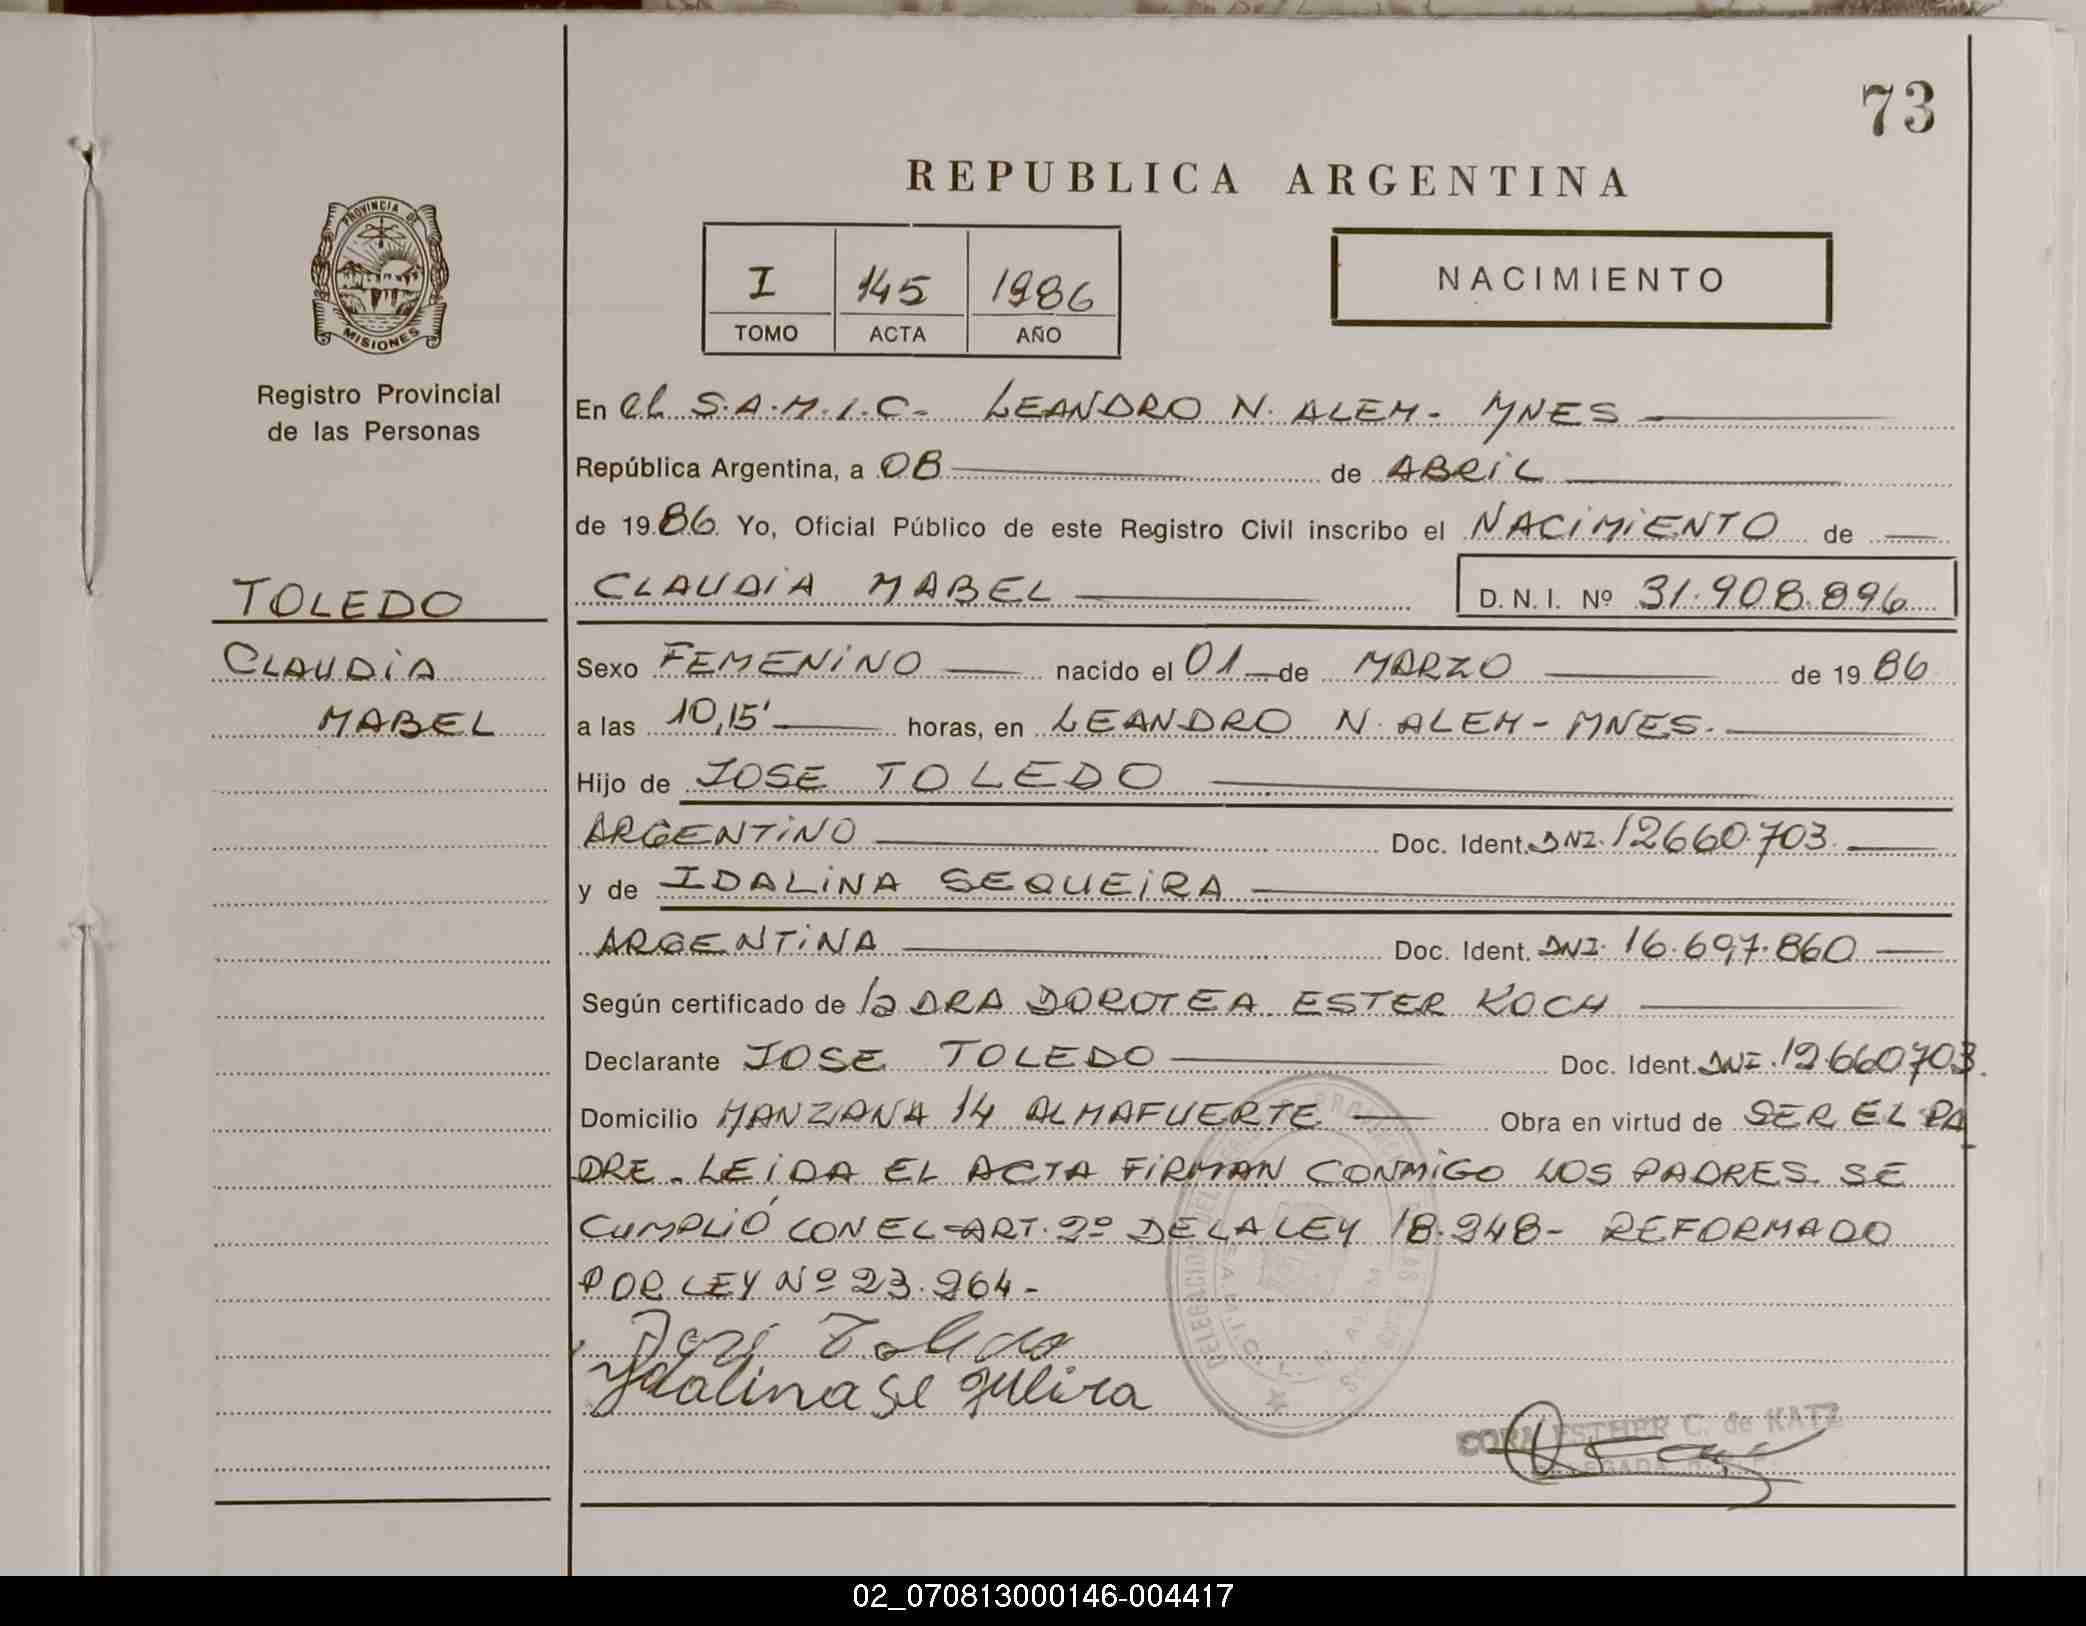 73
REPUBLICA ARGENTINA
PROVINCIA DE
MISIONES
Registro Provincial
de las Personas
I 145 1986
TOMO ACTA AÑO
NACIMIENTO
En el S.A.M.I.C. LEANDRO N. ALEM - MNES
República Argentina, a 08 de ABRIL
de 1986 Yo, Oficial Público de este Registro Civil inscribo el NACIMIENTO de
TOLEDO
CLAUDIA
MABEL
CLAUDIA MABEL D. N. I. Nº 31.908.896
Sexo FEMENINO nacido el 01 de MARZO de 1986
a las 10,15' horas, en LEANDRO N. ALEM - MNES.
Hijo de JOSE TOLEDO
ARGENTINO Doc. Ident. DNI. 12660.703
y de IDALINA SEQUEIRA
ARGENTINA Doc. Ident. DNI. 16.697.860
Según certificado de la DRA DOROTEA ESTER KOCH
Declarante JOSE TOLEDO Doc. Ident. DNI. 12.660703.
Domicilio MANZANA 14 ALMAFUERTE Obra en virtud de SER EL PA
DRE. LEIDA EL ACTA FIRMAN CONMIGO LOS PADRES. SE
CUMPLIÓ CON EL ART. 2º DE LA LEY 18.248 - REFORMADO
POR LEY Nº 23.264 -
José Toledo
Ydalina Sequeira
ESTHER C. de KATZ
02_070813000146-004417